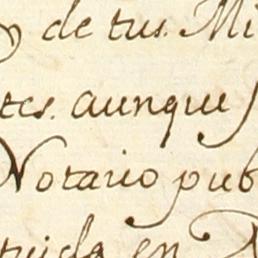 de tus. Mi
tes. aunque
Notario pub
tuida en